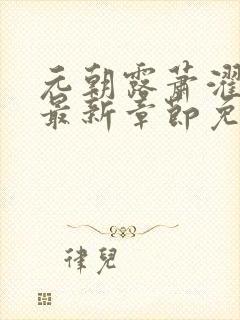 元朝露萧濯
最新章節免
律兒